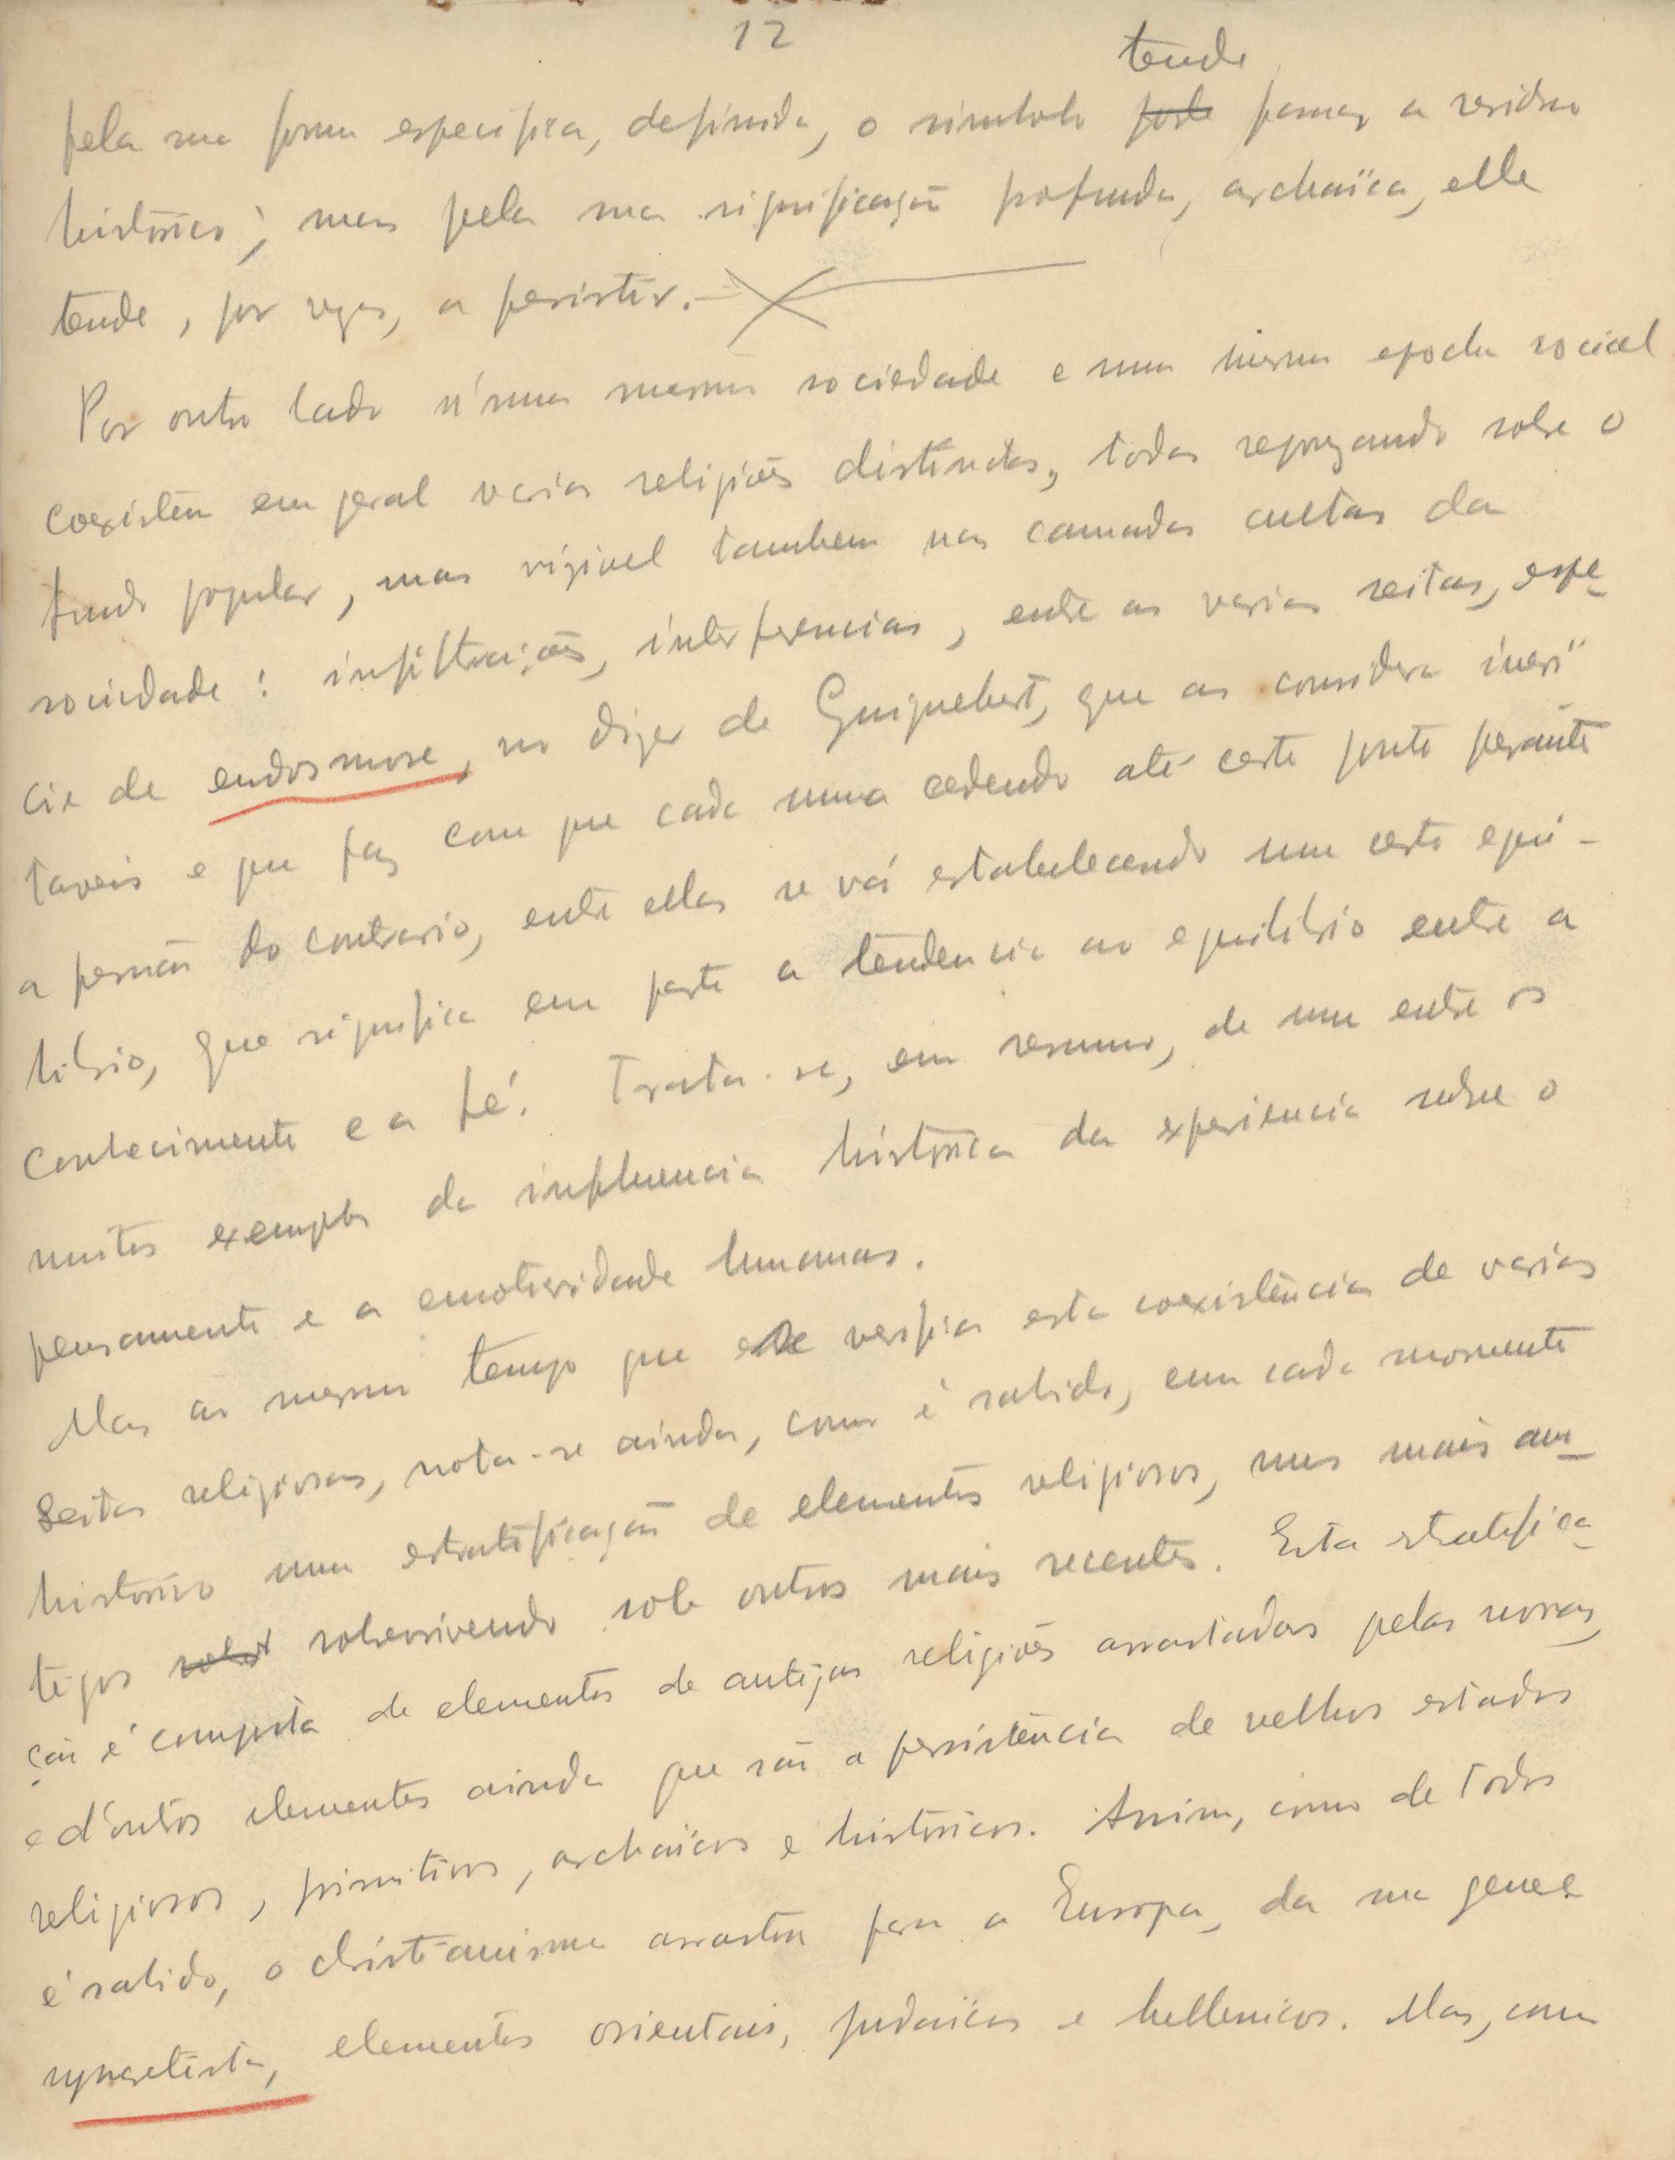 12
tende
pela sua forma especifica, definida, o simbolo pode passar a residuo
histórico; mas pela sua significação profunda, archaïca, elle
tende, por vezes, a persistir.
Por outro lado n'uma mesma sociedade e numa mesma epocha social
coexistem em geral varias religiões distinctas, todas repouzando sobre o
fundo popular, mas vizivel tambem nas camadas cultas da
sociedade: infiltrações, interferencias, entre as varias seitas, espe-
cie de endosmose, no dizer de Guignebert, que as considera inevi-
taveis e que faz com que cada uma cedendo até certo ponto perante
a pressão do contrario, entre ellas se vá estabelecendo um certo equi-
librio, que significa em parte a tendencia ao equilibrio entre a
conhecimento e a fé. Trata-se, em resumo, de um entre os
muitos exemplos da influencia histórica da experiencia sobre o
pensamento e a emotividade humanas.
Mas ao mesmo tempo que se verifica esta coexistência de varias
seitas religiosas, nota-se ainda, como é sabido, em cada momento
historico uma estratificação de elementos religiosos, uns mais an-
tigos sobrevivendo sob outros mais recentes. Esta stratifica-
ção é composta de elementos de antigas religiões arrastadas pelas novas,
e d'outros elementos ainda que são a persistência de velhos estados
religiosos, primitivos, archaïcos e históricos. Assim, como de todos
é sabido, o christianismo arrastou para a Europa, da sua genese
syncretista, elementos orientais, judaïcos e hellenicos. Mas, com